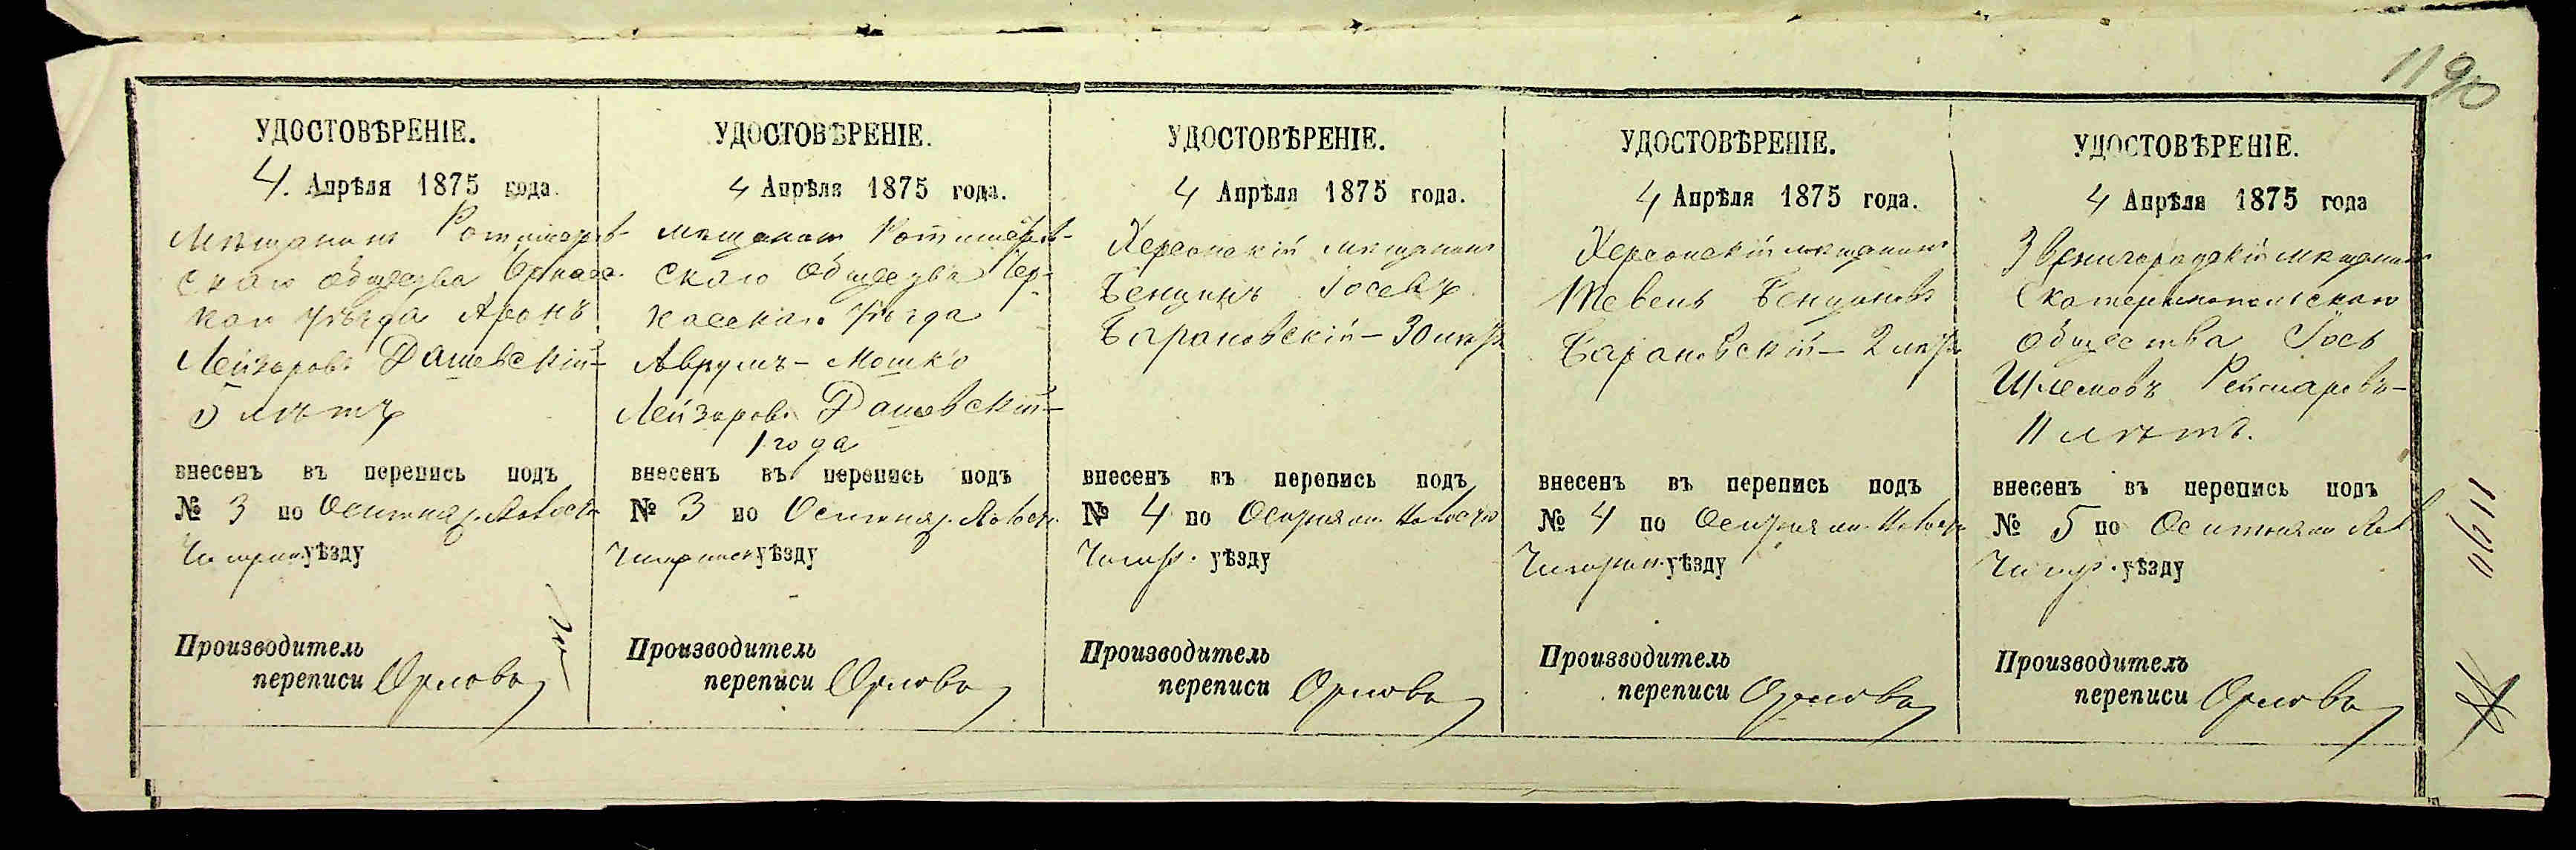 1190
УДОСТОВѢРЕНІЕ.
4. Апрѣля 1875 года.
Мѣщанинъ Ротмистров-
скаго общества Черкасс-
каго уѣзда Аронъ
Лейзоровъ Дашевскій-
5 лѣтъ
внесенъ въ перепись подъ
№ 3 по Оситняж.
Чигрин. уѣзду
Производитель
переписи Орловъ
УДОСТОВѢРЕНІЕ.
4 Апрѣля 1875 года.
мѣщанинъ Ротмистров-
скаго Общества Чер-
касскаго уѣзда
Аврумъ-Мошко
Лейзоровъ Дашевскій-
1 года
внесенъ въ перепись подъ
№ 3 по Оситняж.
Чигринск уѣзду
Производитель
переписи Орловъ
УДОСТОВѢРЕНІЕ.
4 Апрѣля 1875 года.
Херсонскій мѣщанинъ
Бенционъ Іосевъ
Барановскій - 30 лѣтъ
внесенъ въ перепись подъ
№ 4 по
Чигр. уѣзду
Производитель
переписи Орловъ
УДОСТОВѢРЕНІЕ.
4 Апрѣля 1875 года.
Херсонскій мѣщанинъ
Тевель Бенціоновъ
Барановскій - 2 лѣтъ
внесенъ въ перепись подъ
№ 4 по
Чигрин. уѣзду
Производитель
переписи Орловъ
УДОСТОВѢРЕНІЕ.
4 Апрѣля 1875 года
Звенигородскій мѣщанинъ
Екатеринопольскаго
общества Іось
Шлемовъ
11 лѣтъ.
внесенъ въ перепись подъ
№ 5 по
Чигр. уѣзду
Производитель
переписи Орловъ